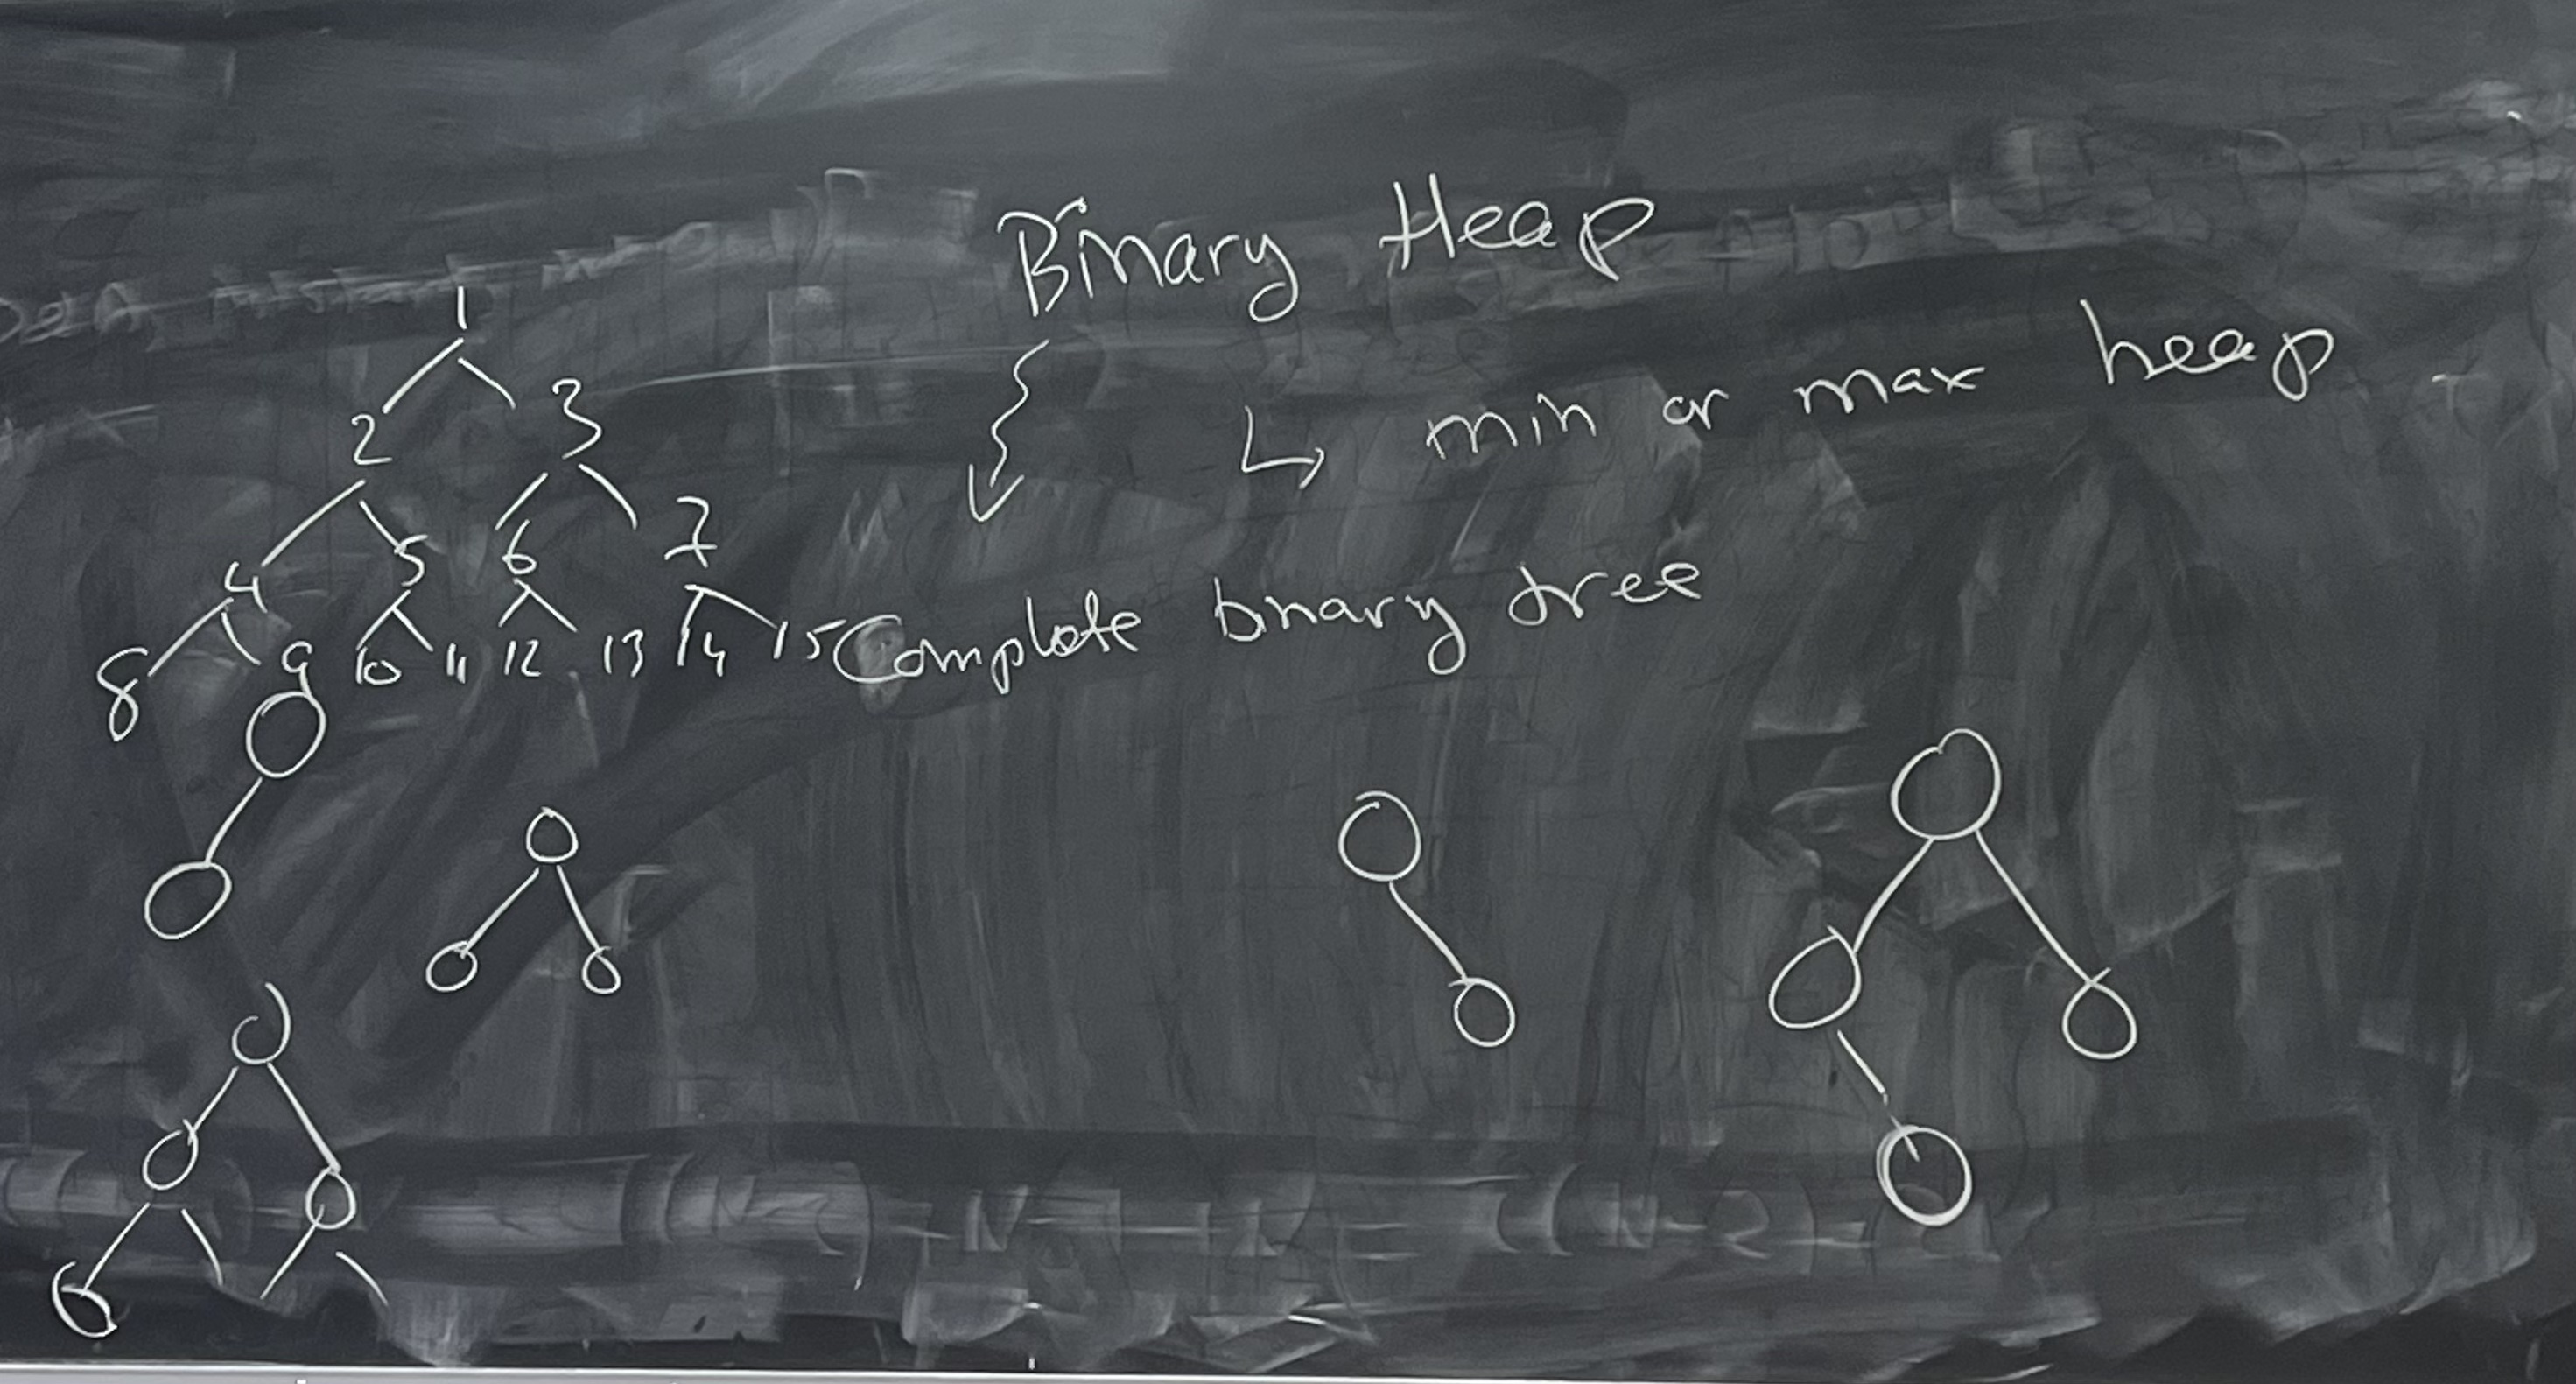 Binary Heap
↳ min or max heap
Complete binary tree
1
2 3
4 5 6 7
8 9 10 11 12 13 14 15